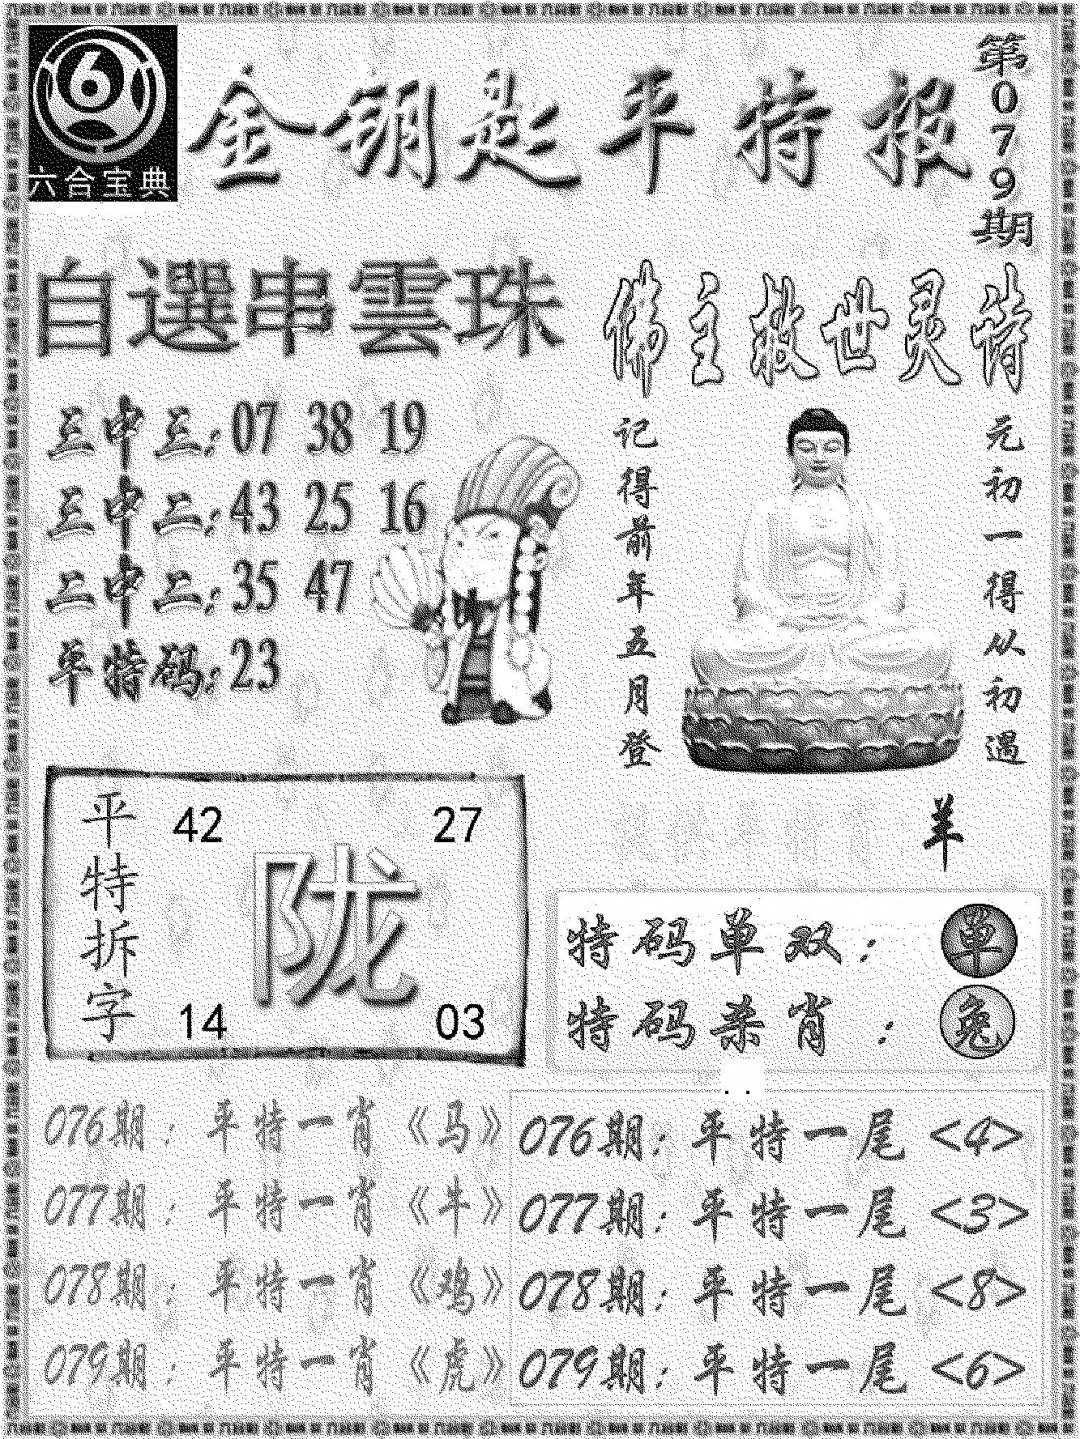 六合宝典
金钥匙平特报
第079期
自選串雲珠
三中三:07 38 19
三中二:43 25 16
二中二:35 47
单特码:23
佛主救世灵诗
元初一得从初遇
记得前年五月登
羊
平特拆字
42 27
陇
14 03
特码单双: 单
特码杀肖: 兔
076期:平特一肖《马》
077期:平特一肖《牛》
078期:平特一肖《鸡》
079期:平特一肖《虎》
076期:平特一尾<4>
077期:平特一尾<3>
078期:平特一尾<8>
079期:平特一尾<6>